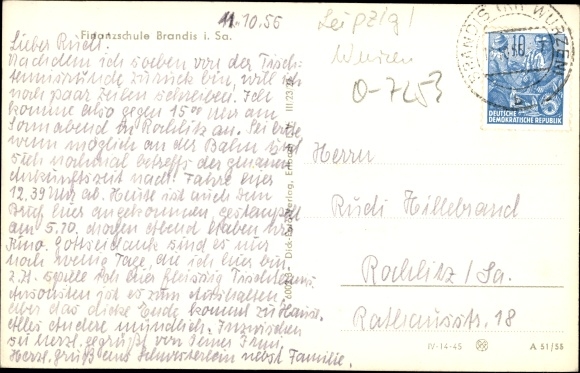 11.10.55
Finanzschule Brandis i. Sa.
Lieber Rudi!
Nachdem ich soeben von der Tisch-
tennisstunde zurück bin, will ich
noch paar Zeilen schreiben. Ich
komme also gegen 15 Uhr am
Sonnabend in Rochlitz an. Sei bitte
wenn möglich an der Bahn und
sieh nochmal betreffs der genauen
Ankunftszeit nach. Fahre hier
12.39 Uhr ab. Heute ist auch Dein
Brief hier angekommen, gestempelt
am 5.10. Morgen Abend haben wir
Kino. Gottseidank sind es nur
noch wenig Tage, die ich hier bin.
Z.Zt. spiele ich hier fleissig Tischtennis.
Ansonsten ist es zum Aushalten,
aber das dicke Ende kommt zu Hause.
Alles andere mündlich. Inzwischen
sei herzl. gegrüßt von Deiner
Herzl. Gruß ans Schwesterlein nebst Familie.
III 23 28
Leipzig!
Wurzen
0-7253
BRANDIS (KR WURZEN)
10
DEUTSCHE
DEMOKRATISCHE REPUBLIK
Herrn
Rudi Hillebrand
Rochlitz/Sa.
Rathausstr. 18
IV-14-45
A 51/55